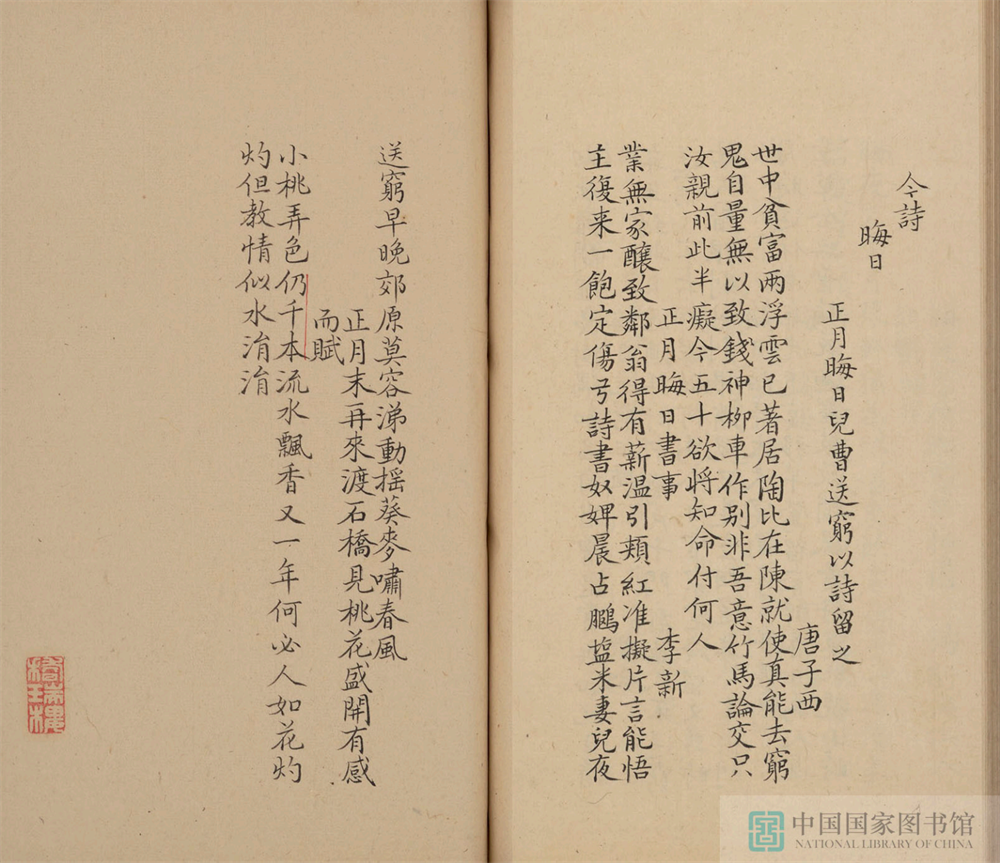 今詩
晦日
正月晦日兒曹送窮以詩留之
唐子西
世中貧富兩浮雲已著居陶比在陳就使真能去窮
鬼自量無以致錢神柳車作别非吾意竹馬論交只
汝親前此半癡今五十欲将知命付何人
正月晦日書事
李新
業無家釀致鄰翁得有薪温引頰紅准擬片言能悟
主復来一飽定傷弓詩書奴婢晨占鵩盐米妻兒夜
送窮早晚郊原莫容涕動揺葵麥嘯春風
正月末再來渡石橋見桃花盛開有感
而賦
小桃弄色仍千本流水飄香又一年何必人如花灼
灼但教情似水涓涓
中国国家图书馆
NATIONAL LIBRARY OF CHINA